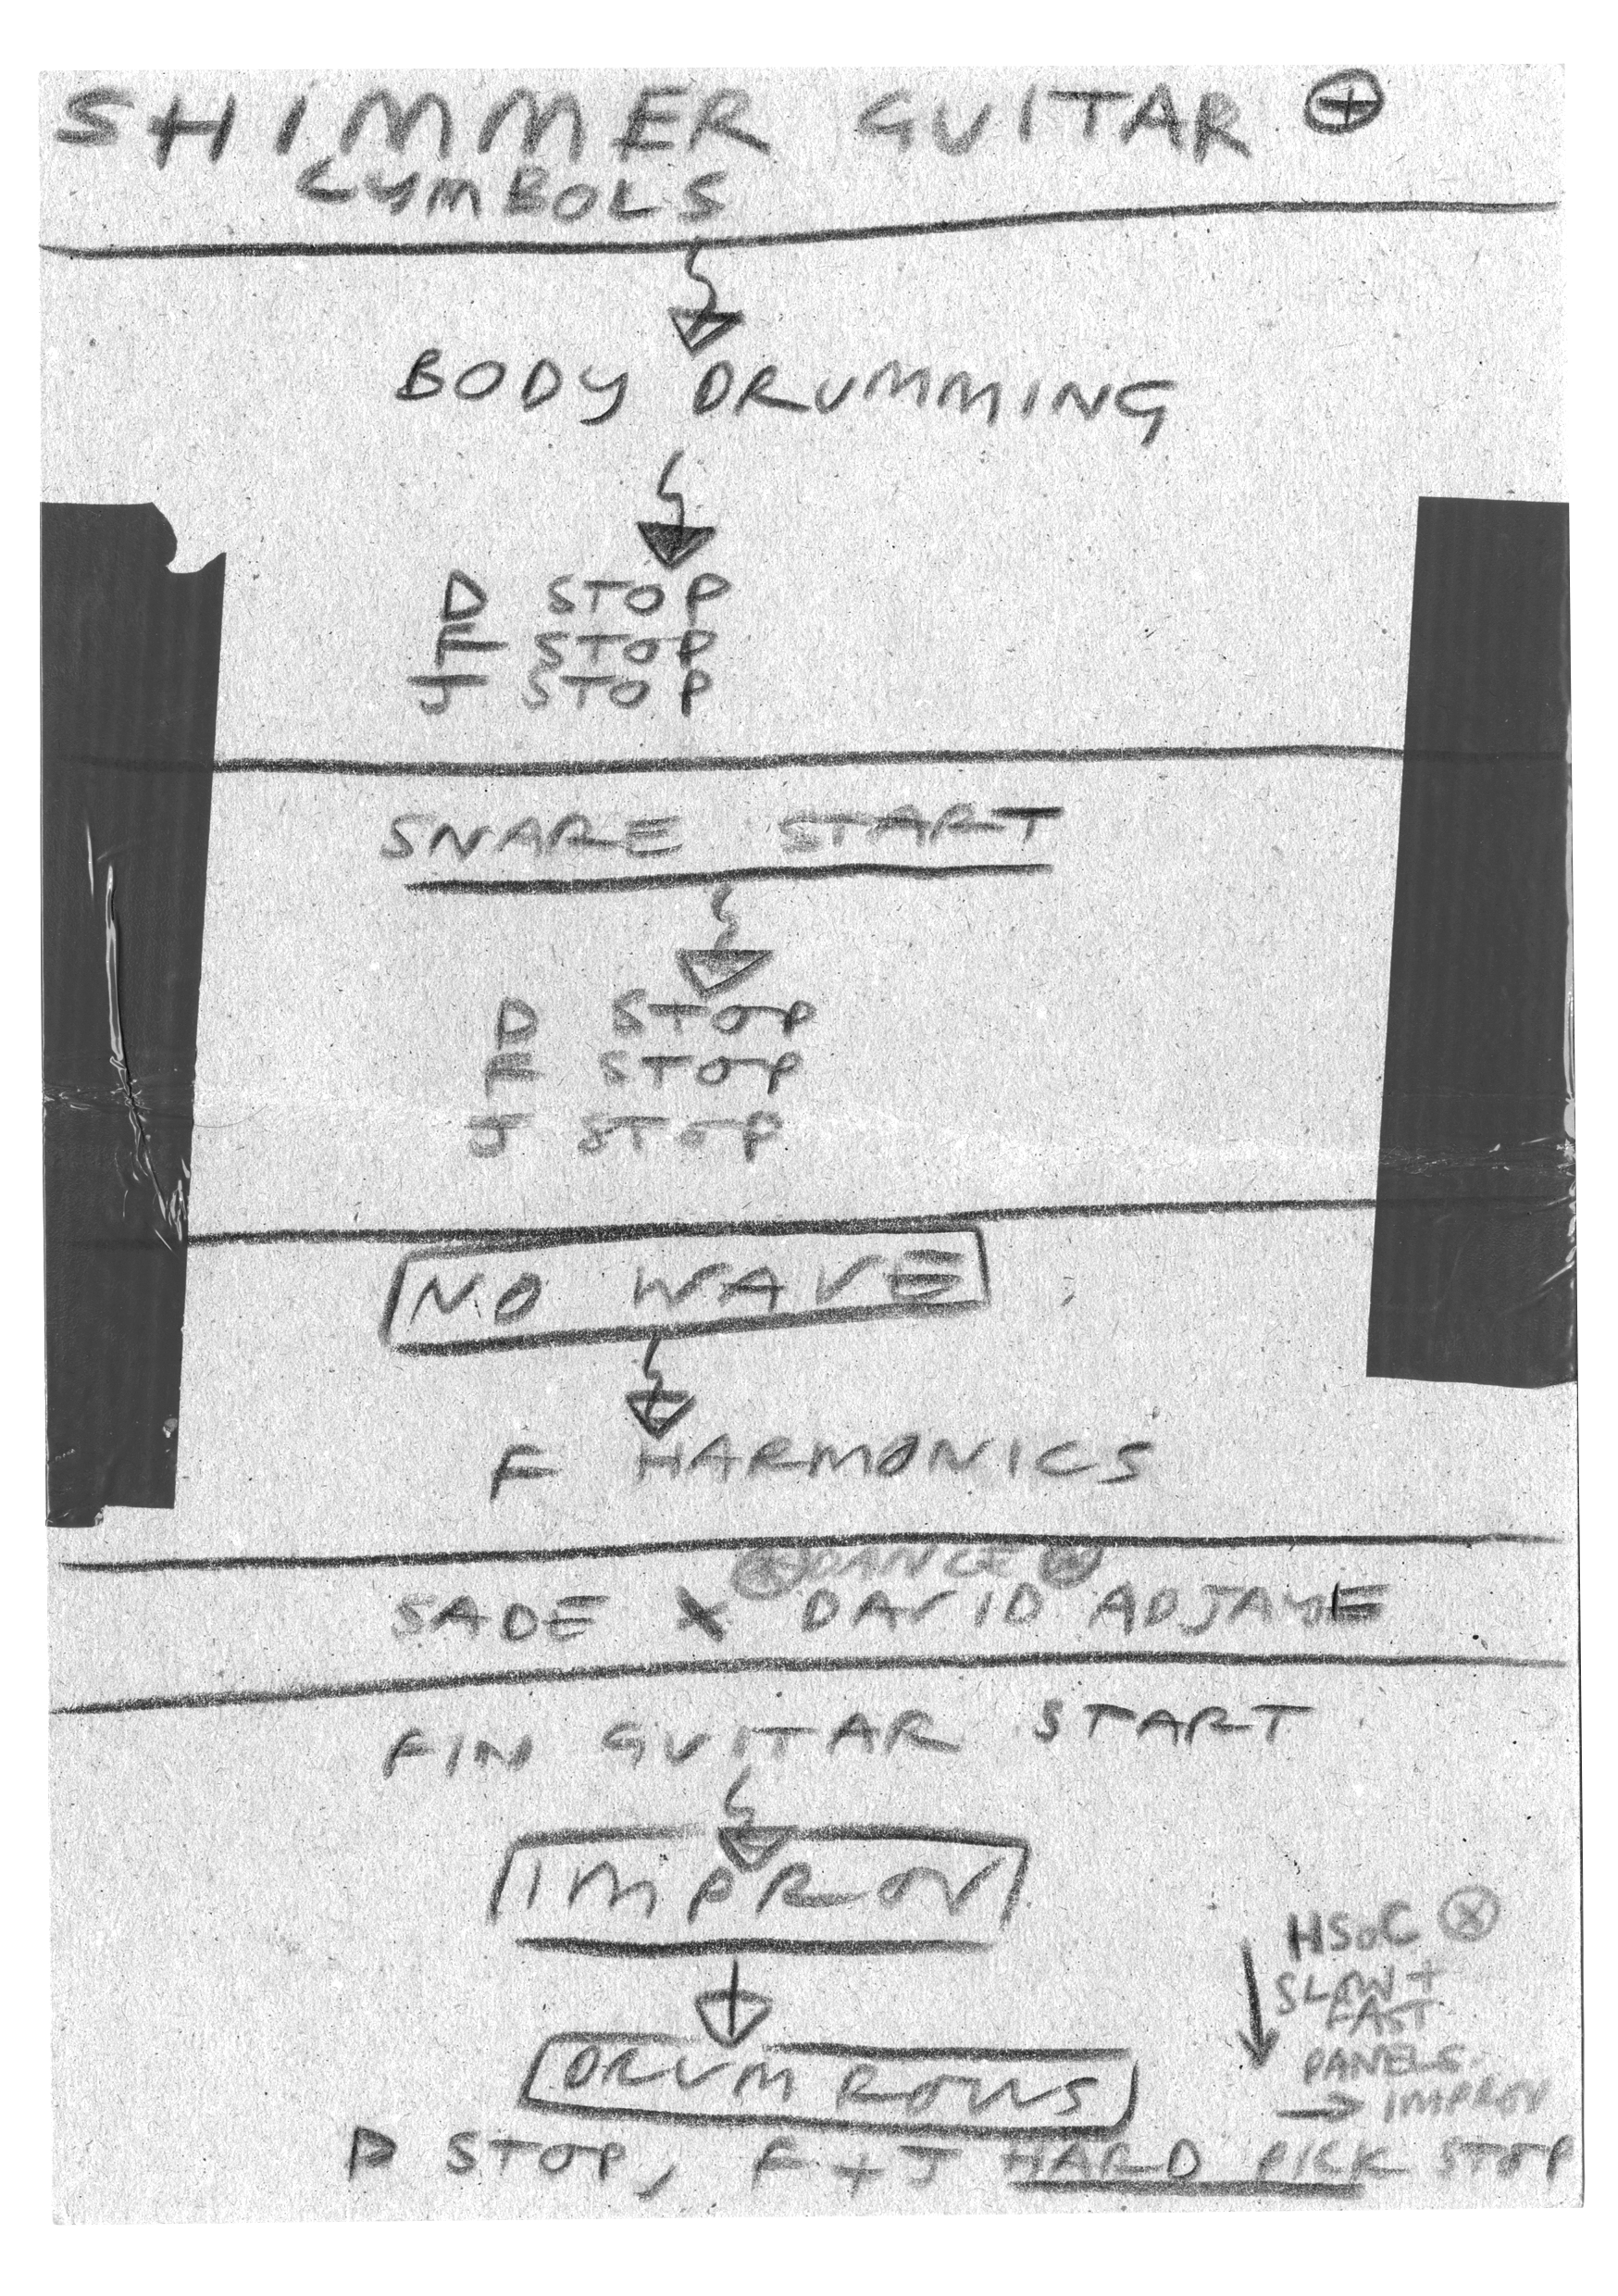 SHIMMER GUITAR ⊕
CYMBOLS
BODY DRUMMING
D STOP
F STOP
J STOP
SNARE START
D STOP
F STOP
J STOP
NO WAVE
F HARMONICS
DANCE
SADE X DAVID ADJAYE
FIN GUITAR START
IMPROV
DRUM ROWS
HSOC ⊗
SLOW +
FAST
PANELS
→ IMPROV
D STOP, F + J HARD PICK STOP